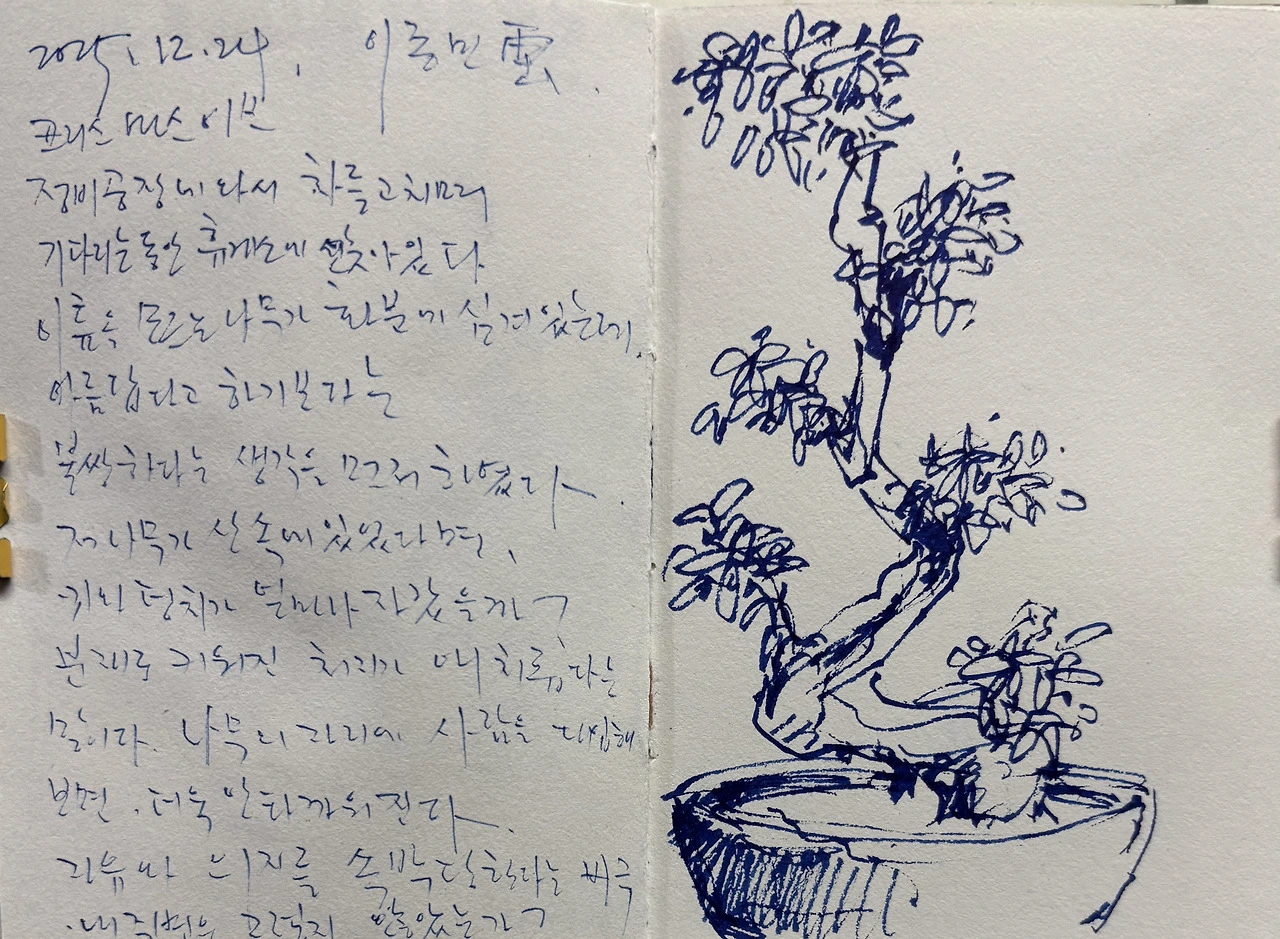 2025. 12. 24.
크리스마스 이브
정비공장에 와서 차를 고치며
기다리는 동안 휴게소에 앉아 있다
이름 모르는 나무가 화분에 심겨 있는데,
아름답다고 하기보다는
불쌍하다는 생각을 먼저 하였다.
저 나무가 산 속에 있었다면,
키와 덩치가 얼마나 자랐을까?
분재로 키워진 처지가 애처롭다는
말이다. 나무의 자리에 사람을 대입해
보면, 더욱 안타까워진다.
자유와 의지를 속박당한다는 비극
내 주변은 그렇지 않았는가?